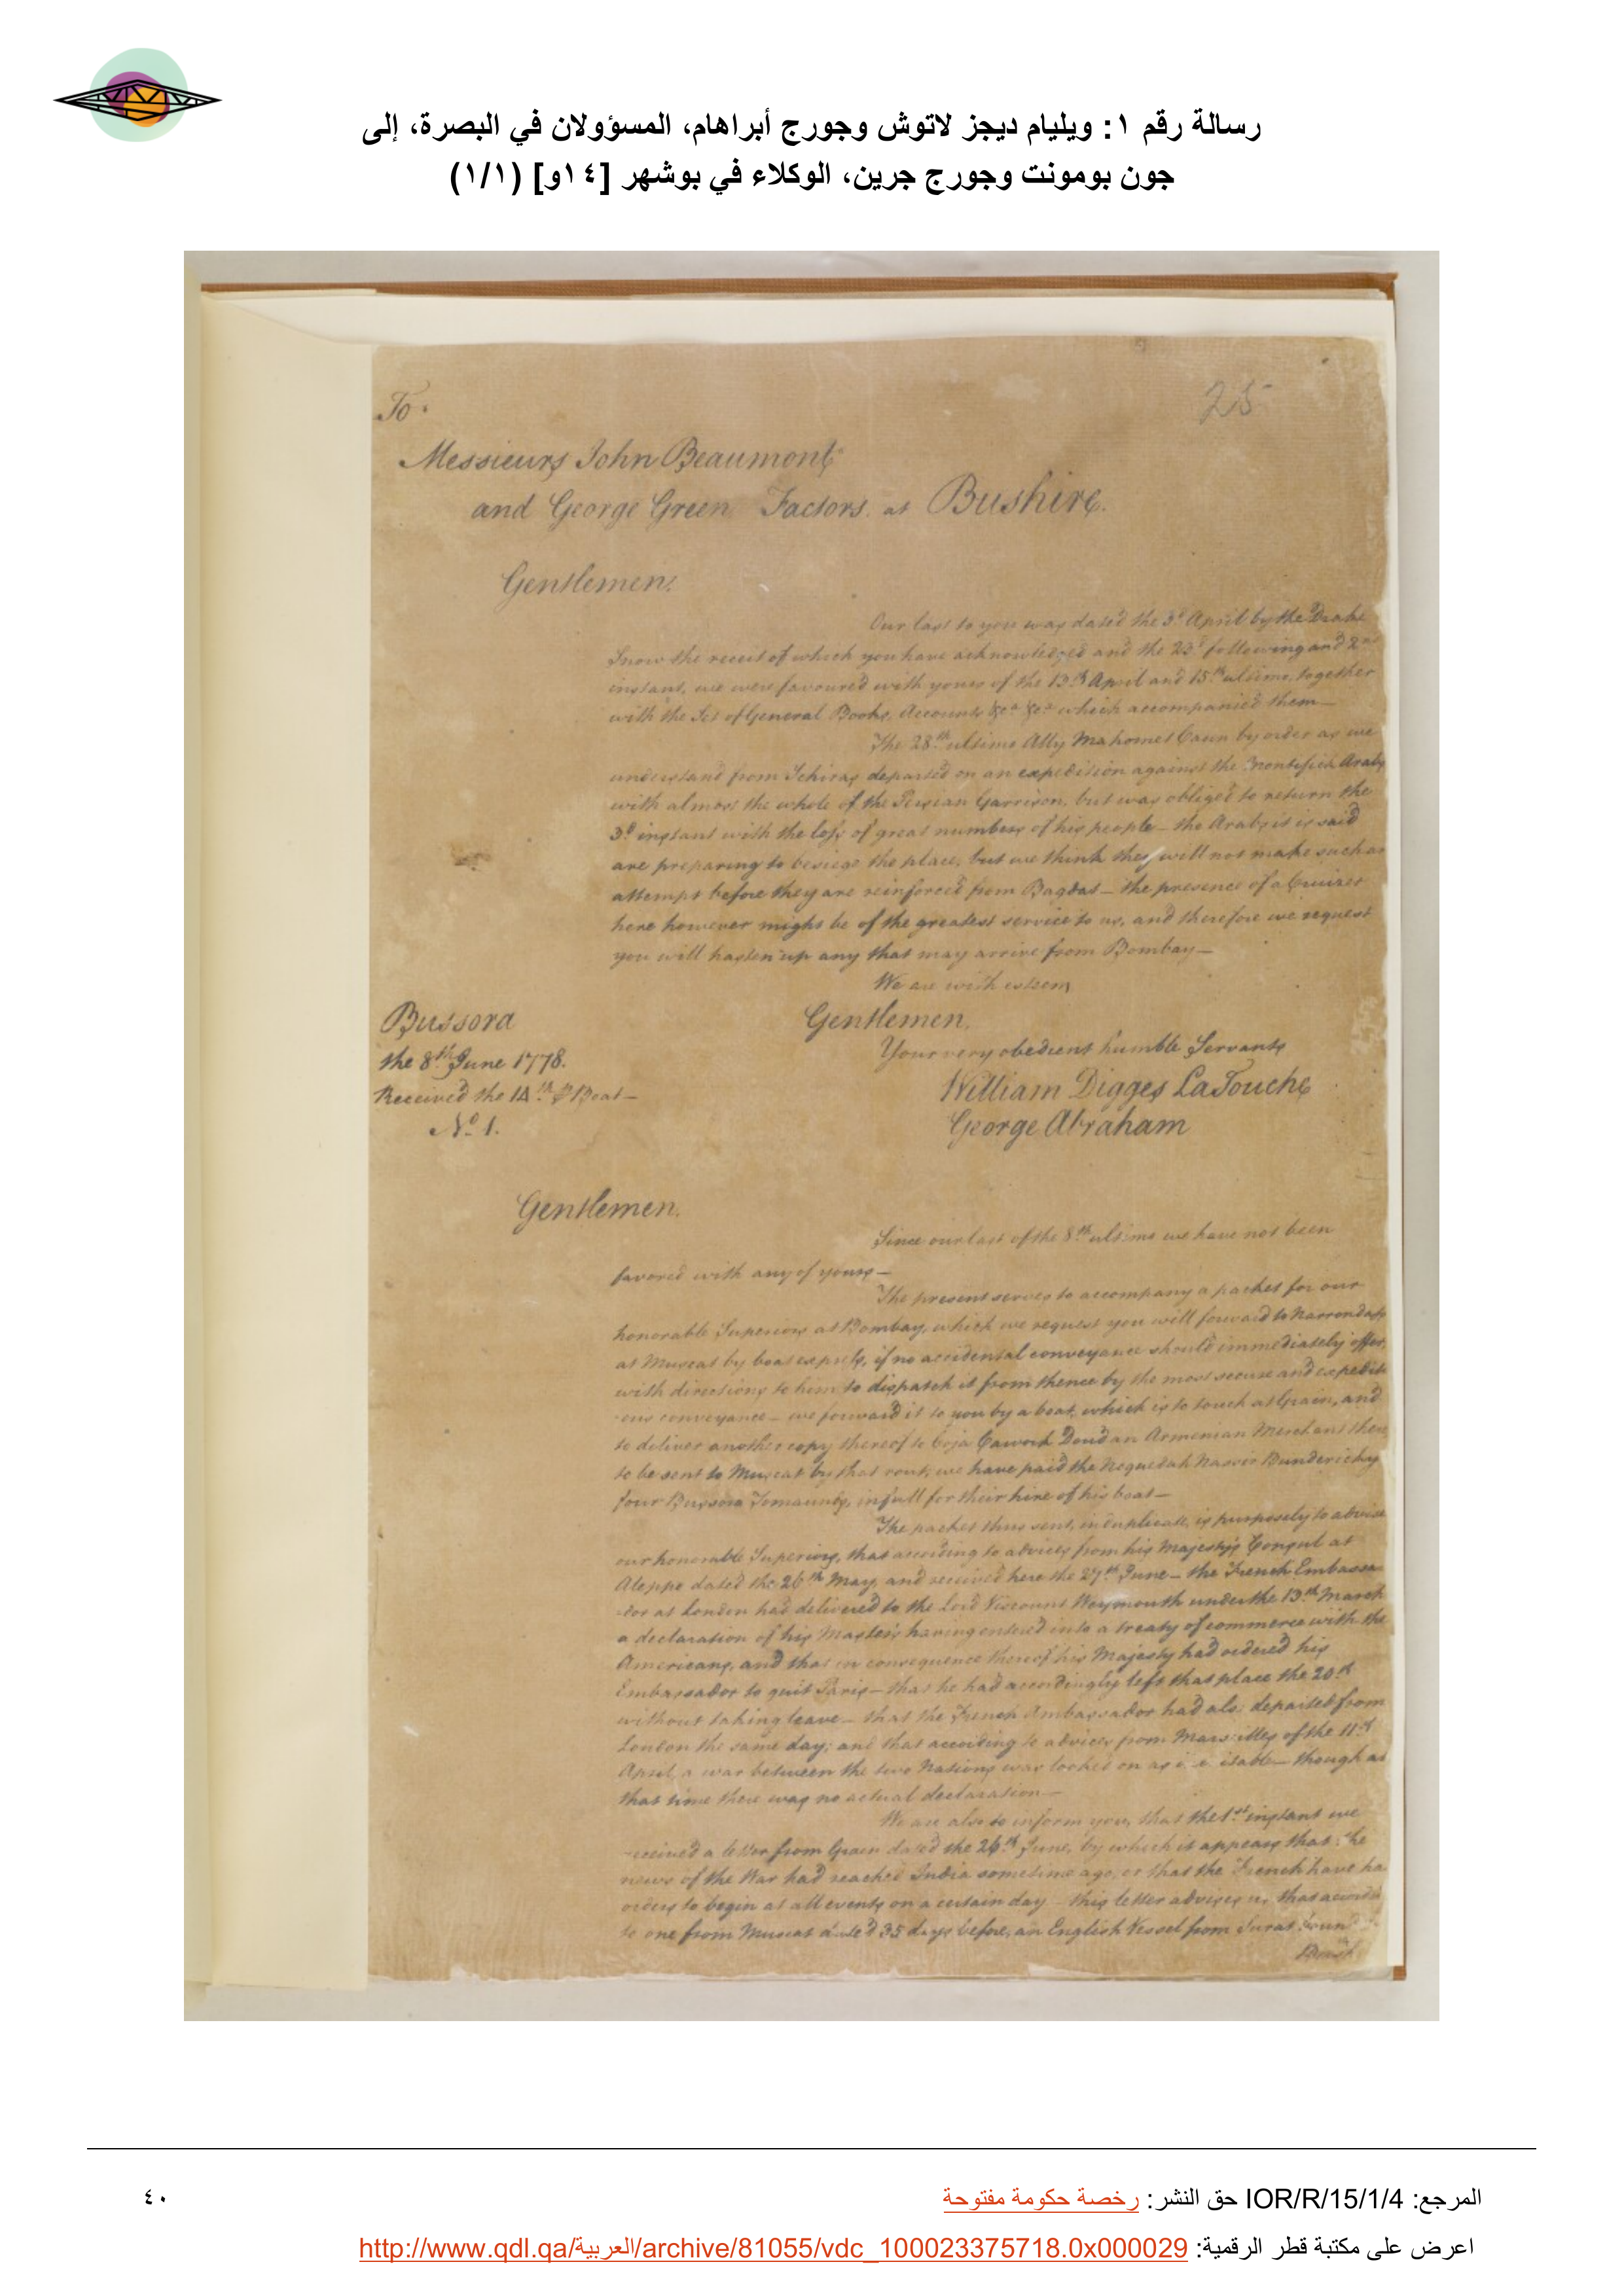 رسالة رقم ١: ويليام ديجز لاتوش وجورج أبراهام، المسؤولان في البصرة، إلى
جون بومونت وجورج جرين، الوكلاء في بوشهر [١٤و] (١/١)
To
25
Messieurs John Beaumont
and George Green Factors at Bushire.
Gentlemen,
Our last to you was dated the 3d April by the Drake
Snow the receit of which you have acknowledged and the 23d following and 2nd
instant, we were favoured with yours of the 13th April and 15th ultimo, together
with the Set of General Books, Accounts &ca &ca which accompanied them—
The 28th ultimo Ally Mahomet Caun by order as we
understand from Schiras departed on an expedition against the Montifick Arabs
with almost the whole of the Persian Garrison, but was obliged to return the
3d instant with the loss of great numbers of his people— the Arabs it is said
are preparing to besiege the place, but we think they will not make such an
attempt before they are reinforced from Bagdat— the presence of a Cruizer
here however might be of the greatest service to us, and therefore we request
you will hasten up any that may arrive from Bombay—
We are with esteem
Bussora
the 8th June 1778.
Received the 14th Boat—
No. 1.
Gentlemen.
Your very obedient humble Servants
William Digges LaTouche
George Abraham
Gentlemen.
Since our last of the 8th ultimo we have not been
favored with any of yours—
The present serves to accompany a packet for our
honorable Superiors at Bombay, which we request you will forward to Narrondass
at Muscat by boat express, if no accidental conveyance should immediately offer,
with directions to him to dispatch it from thence by the most secure and expediti
-ous conveyance— we forward it to you by a boat, which is to touch at Grain, and
to deliver another copy thereof to Coja Cawork Doud an Armenian Merchant there
to be sent to Muscat by that rout, we have paid the Noquedah Nassir Bundericky
four Bussora Tomaunds, in full for their hire of his boat—
The packet thus sent, in duplicate, is purposely to advise
our honorable Superiors, that according to advices from his Majesty's Consul at
Aleppo dated the 26th May, and received here the 27th June— the French Embassa
-dor at London had delivered to the Lord Viscount Weymouth under the 13th March
a declaration of his Master's having entered into a treaty of commerce with the
Americans, and that in consequence thereof his Majesty had ordered his
Embassador to quit Paris— that he had accordingly left that place the 20th
without taking leave— that the French Ambassador had also departed from
London the same day; and that according to advices from Marseilles of the 11th
April, a war between the two Nations was looked on as— though at
that time there was no actual declaration—
We are also to inform you, that the 1st instant we
received a letter from Grain dated the 26th June, by which it appears that the
news of the War had reached India sometime ago, or that the French have had
orders to begin at all events on a certain day— this letter advises us that according
to one from Muscat dated 35 days before, an English Vessel from Surat bound
المرجع: IOR/R/15/1/4 حق النشر: رخصة حكومة مفتوحة
٤٠
اعرض على مكتبة قطر الرقمية: http://www.qdl.qa/العربية/archive/81055/vdc_100023375718.0x000029